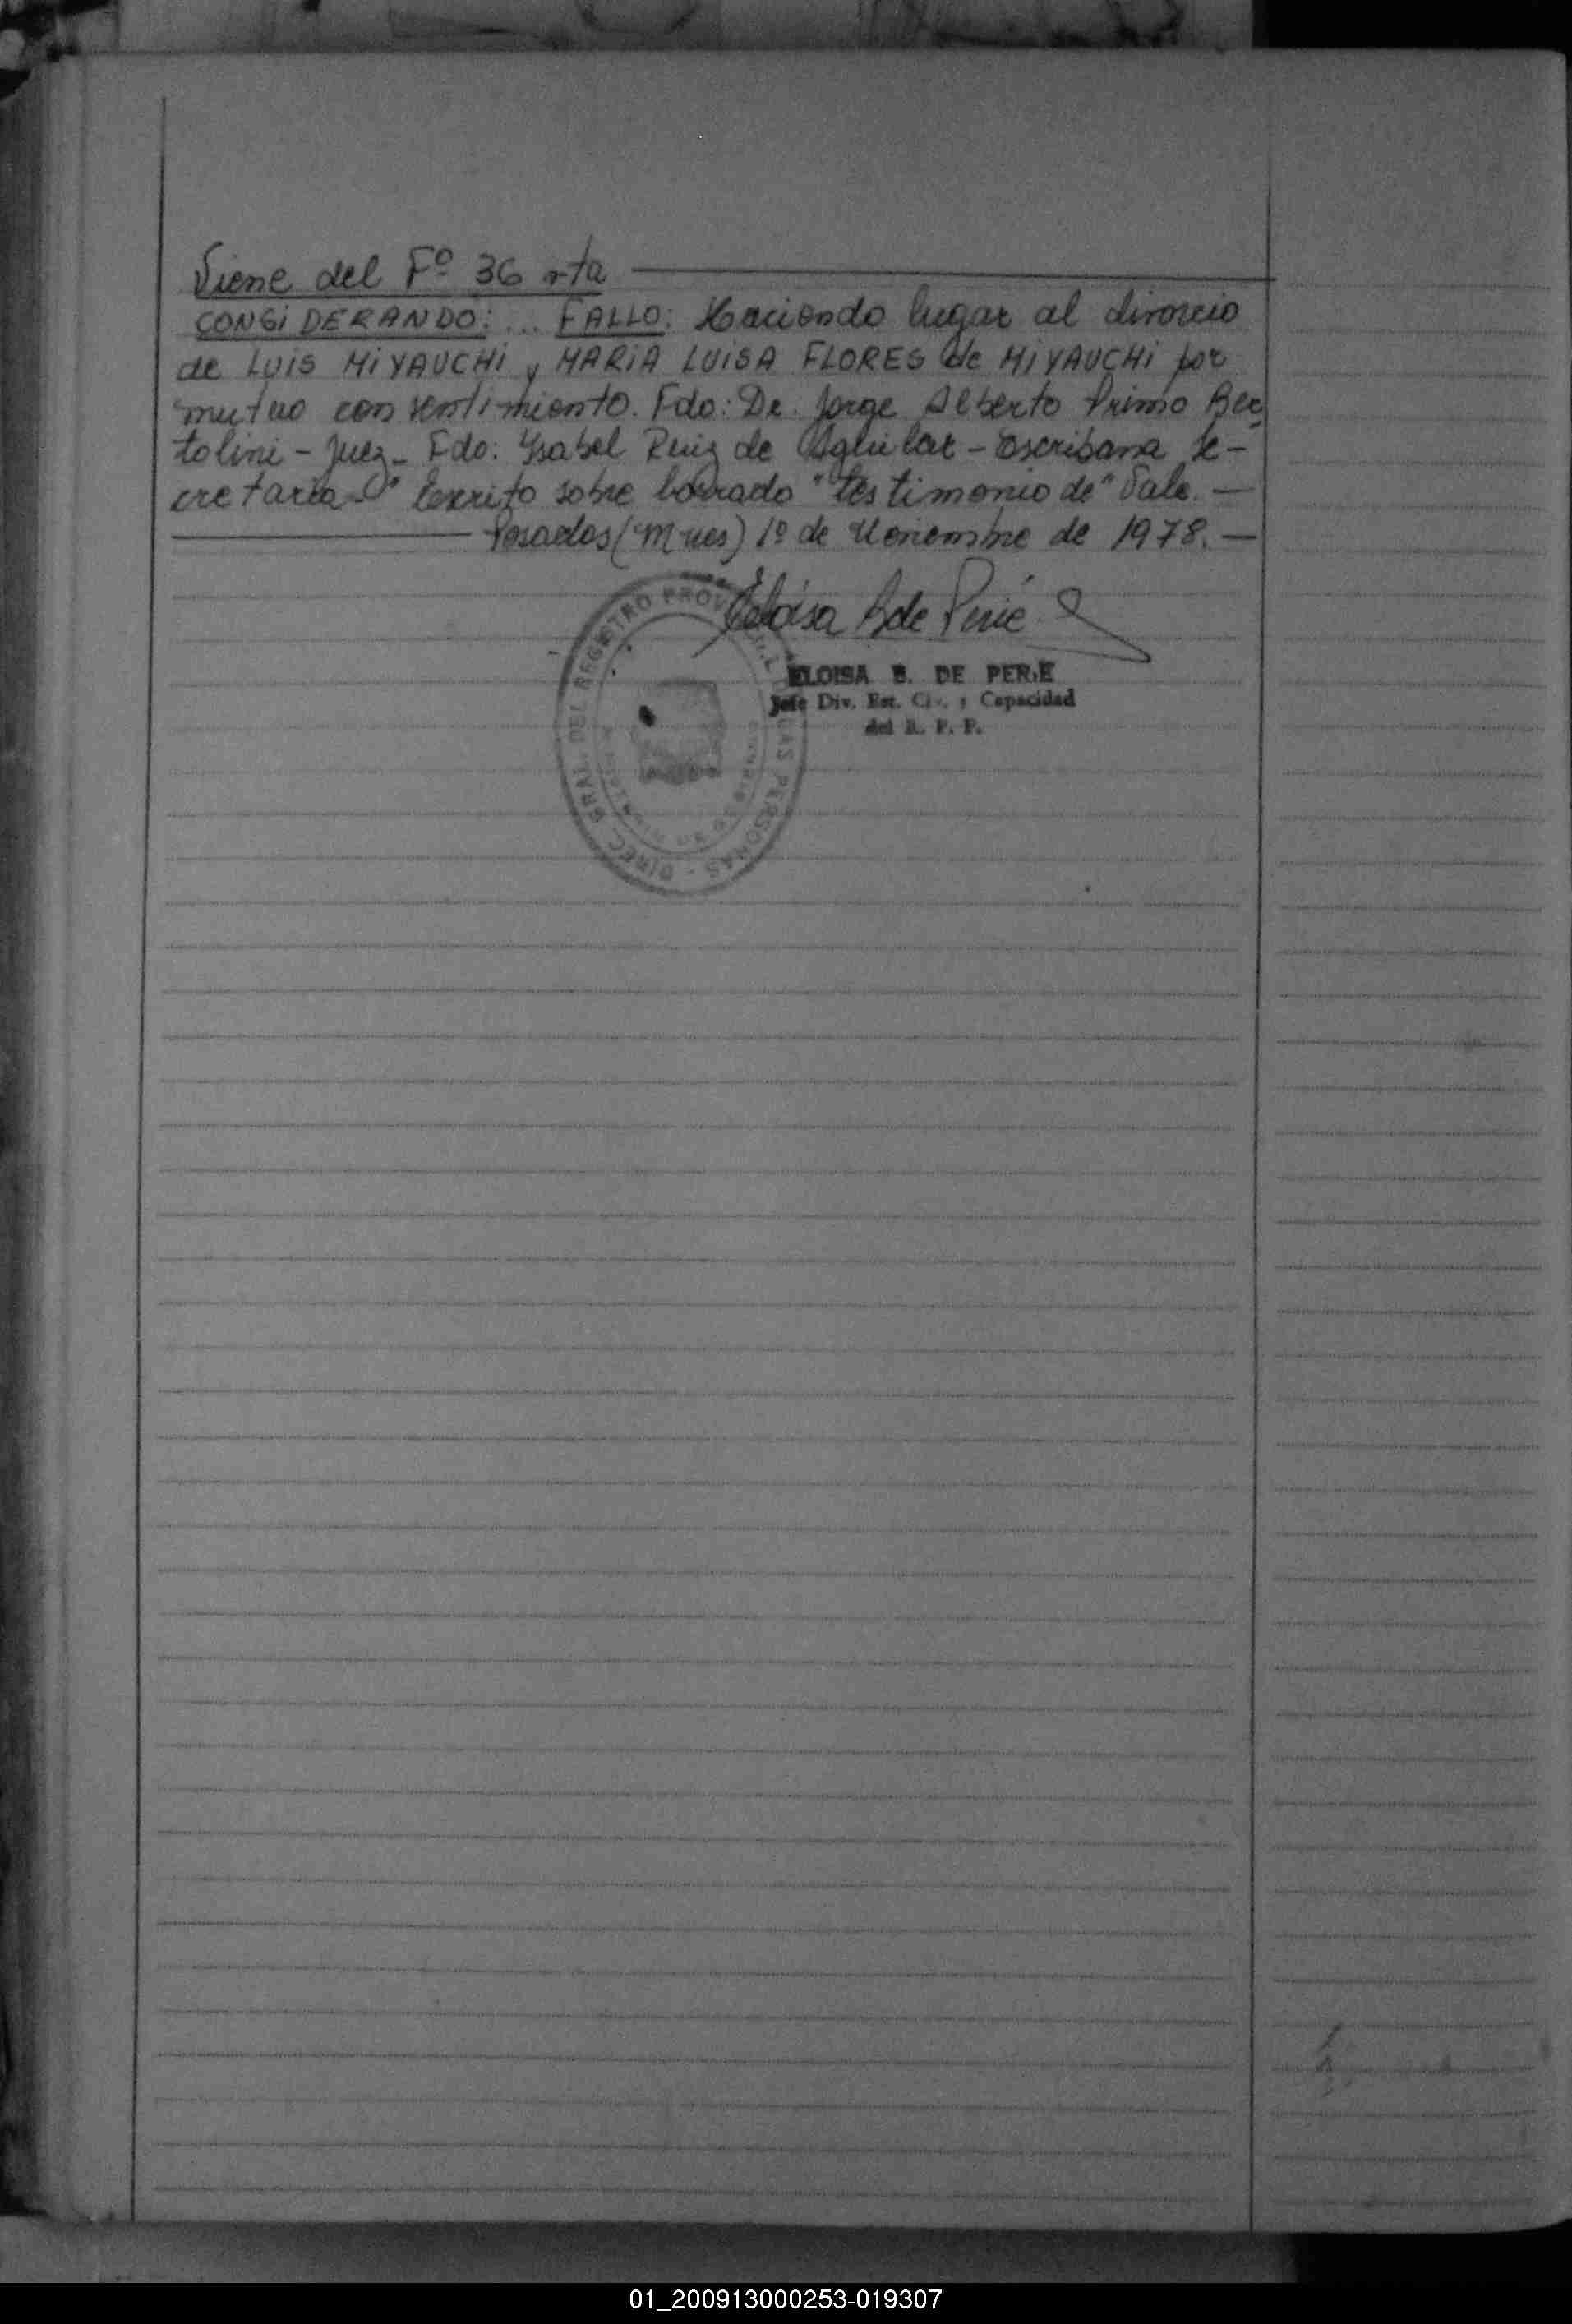 Viene del Fº 36 vta
CONSIDERANDO: ... FALLO: Haciendo lugar al divorcio
de LUIS MIYAUCHI y MARIA LUISA FLORES de MIYAUCHI por
mutuo consentimiento. Fdo: Dr. Jorge Alberto Primo Ber
tolini - Juez - Fdo: Ysabel Ruiz de Aguilar - Escribana Se-
cretaria - Escrito sobre borrado "testimonio de" Vale. -
Posadas (Mnes) 1º de Noviembre de 1978. -
Eloisa B de Perié
ELOISA B. DE PERIE
Jefe Div. Est. Civ. y Capacidad
del R. P. P.
DIREC. GRAL. DEL REGISTRO PROV. LAS PERSONAS -
01_200913000253-019307